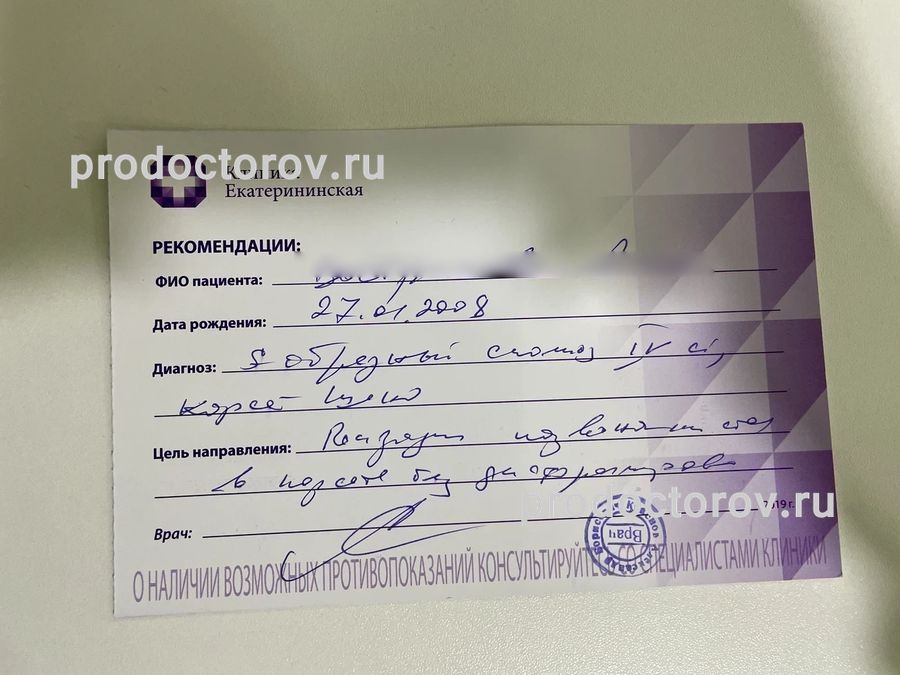 prodoctorov.ru
Клиника
Екатерининская
РЕКОМЕНДАЦИИ:
ФИО пациента:
Дата рождения: 27.01.2008
Диагноз: S образный сколиоз IV ст,
корсет Шено
Цель направления: Rентген позвоночника стоя
в корсете без
prodoctorov.ru
2019 г.
Врач:
Врач
О НАЛИЧИИ ВОЗМОЖНЫХ ПРОТИВОПОКАЗАНИЙ КОНСУЛЬТИРУЙТЕСЬ СО СПЕЦИАЛИСТАМИ КЛИНИКИ